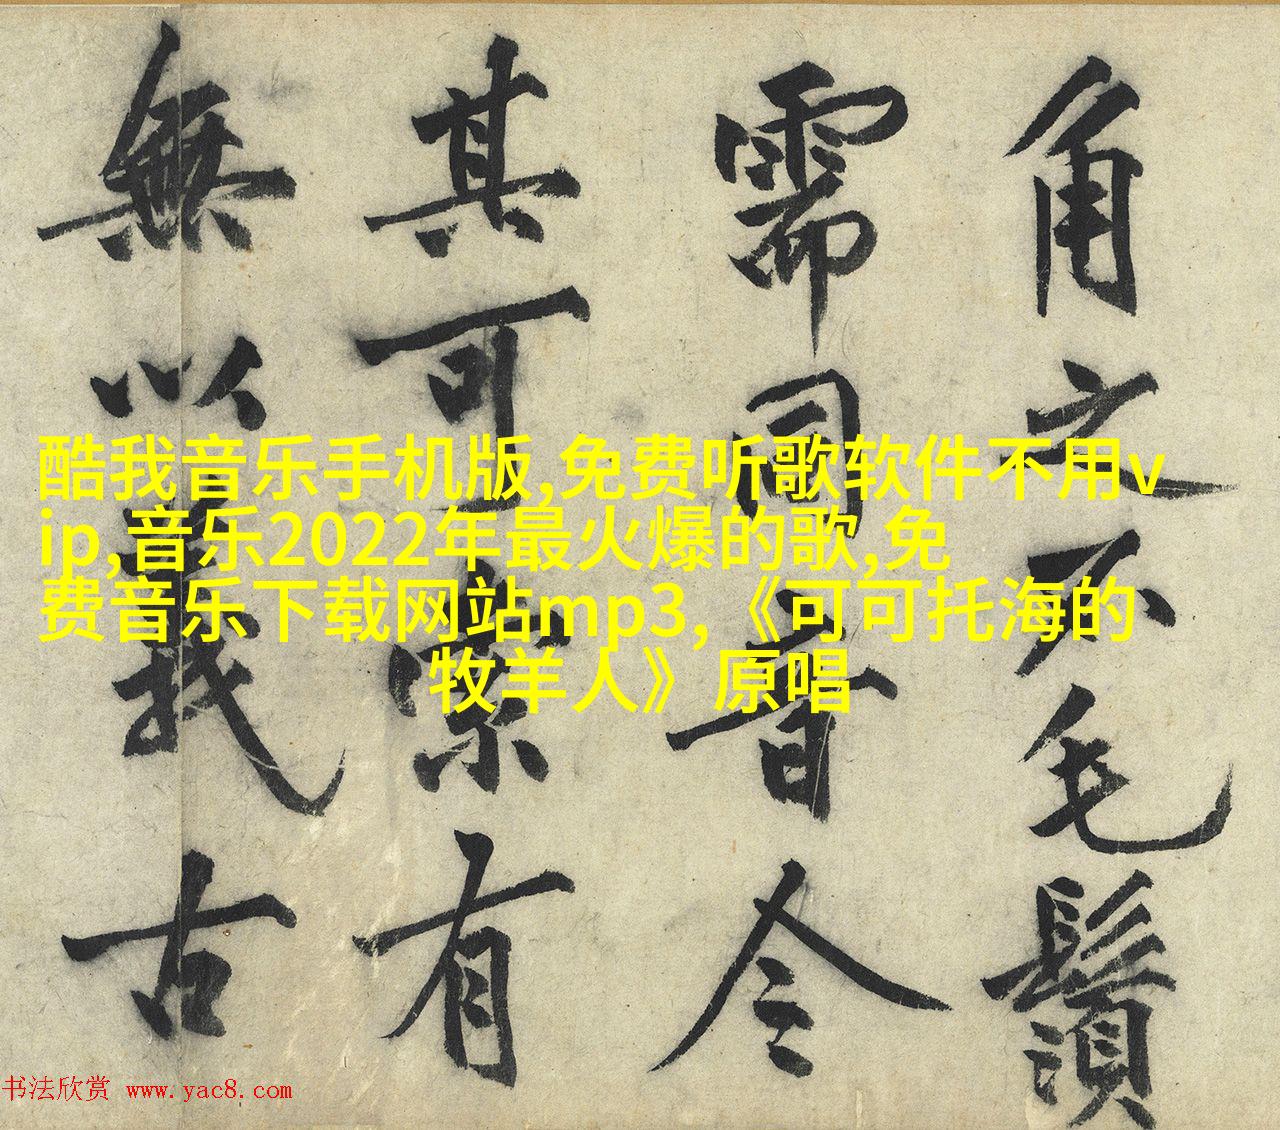 角之不毛鬚
需同音今
其可有
無以義古
酷我音乐手机版,免费听歌软件不用v
ip,音乐2022年最火爆的歌,免
费音乐下载网站mp3,《可可托海的
牧羊人》原唱
书法欣赏 www.yac8.com